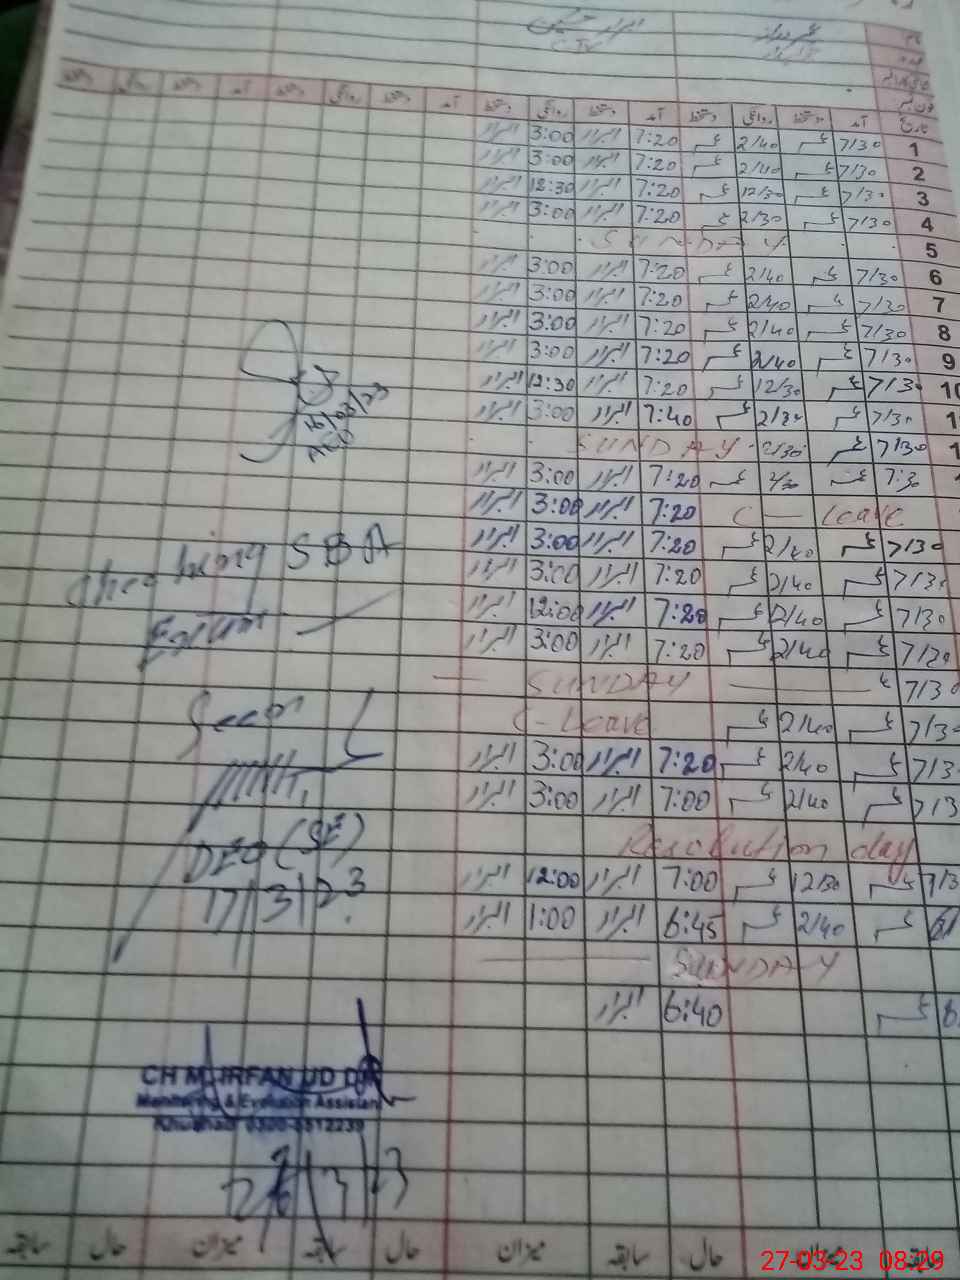 نام
عہدہ
C.T.V
تاریخ آمد دستخط روانگی دستخط آمد دستخط روانگی دستخط آمد دستخط روانگی دستخط آمد دستخط روانگی دستخط
1 7/30 2/40 7:20 ابرار 3:00 ابرار
2 7/30 2/40 7:20 ابرار 3:00 ابرار
3 7/30 12/30 7:20 ابرار 12:30 ابرار
4 7/30 2/30 7:20 ابرار 3:00 ابرار
5 SUNDAY
6 7/30 2/40 7:20 ابرار 3:00 ابرار
7 7/30 2/40 7:20 ابرار 3:00 ابرار
8 7/30 2/40 7:20 ابرار 3:00 ابرار
9 7/30 2/40 7:20 ابرار 3:00 ابرار
10 7/30 12/30 7:20 ابرار 12:30 ابرار
1 7/30 2/30 7:40 ابرار 3:00 ابرار
1 7/30 2/30 SUNDAY
7:30 2/30 7:20 ابرار 3:00 ابرار
C - Leave 7:20 ابرار 3:00 ابرار
7/30 2/40 7:20 ابرار 3:00 ابرار
7/30 2/40 7:20 ابرار 3:00 ابرار
7/30 2/40 7:20 ابرار 12:00 ابرار
7/30 2/40 7:20 ابرار 3:00 ابرار
7/30 SUNDAY
7/30 2/40 C-Leave
7/3 2/40 7:20 ابرار 3:00 ابرار
7/3 2/40 7:00 ابرار 3:00 ابرار
Resolution day
7/3 12/30 7:00 ابرار 12:00 ابرار
2/40 6:45 ابرار 1:00 ابرار
SUNDAY
6:40 ابرار
16/03/23
AEO
Checking SBA
Exam
Seen
DEO (SE)
17/3/23
CH M. IRFAN UD DIN
Monitoring & Evaluation Assistant
Khushab
3/23
سابقہ حال میزان سابقہ حال میزان سابقہ حال میزان سابقہ
27-03-23 08:29